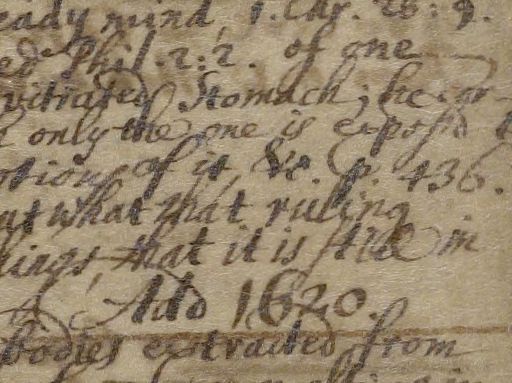 eady mind 1. Chr. 28: 9.
ed Phil. 2: 2. of one
vitrated Stomach; he gr
only the one is expos'd t
otion of it, &c. p. 436.
at what that ruling
ings that it is still in
Add 1620.
bodies extracted from